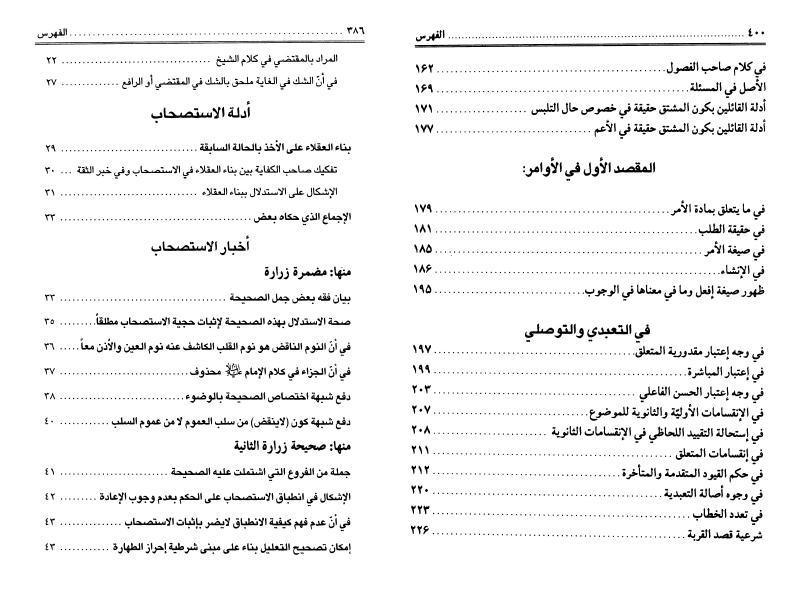 ٤٠٠ ........ الفهرس
في كلام صاحب الفصول ........ ١٦٢
الأصل في المسئلة ........ ١٦٩
أدلة القائلين بكون المشتق حقيقة في خصوص حال التلبس ........ ١٧١
أدلة القائلين بكون المشتق حقيقة في الأعم ........ ١٧٧
المقصد الأول في الأوامر:
في ما يتعلق بمادة الأمر ........ ١٧٩
في حقيقة الطلب ........ ١٨١
في صيغة الأمر ........ ١٨٥
في الإنشاء ........ ١٨٦
ظهور صيغة إفعل وما في معناها في الوجوب ........ ١٩٥
في التعبدي والتوصلي
في وجه إعتبار مقدورية المتعلق ........ ١٩٧
في إعتبار المباشرة ........ ١٩٩
في وجه إعتبار الحسن الفاعلي ........ ٢٠٣
في الإنقسامات الأوليّة والثانوية للموضوع ........ ٢٠٧
في إستحالة التقييد اللحاظي في الإنقسامات الثانوية ........ ٢٠٨
في إنقسامات المتعلق ........ ٢١١
في حكم القيود المتقدمة والمتأخرة ........ ٢١٢
في وجوه أصالة التعبدية ........ ٢٢٠
في تعدد الخطاب ........ ٢٢٣
شرعية قصد القربة ........ ٢٢٦
٣٨٦ ........ الفهرس
المراد بالمقتضي في كلام الشيخ ........ ٢٢
في أنّ الشك في الغاية ملحق بالشك في المقتضي أو الرافع ........ ٢٧
أدلة الاستصحاب
بناء العقلاء على الأخذ بالحالة السابقة ........ ٢٩
تفكيك صاحب الكفاية بين بناء العقلاء في الاستصحاب وفي خبر الثقة ... ٣٠
الإشكال على الاستدلال ببناء العقلاء ........ ٣١
الإجماع الذي حكاه بعض ........ ٣٣
أخبار الاستصحاب
منها: مضمرة زرارة
بيان فقه بعض جمل الصحيحة ........ ٣٣
صحة الاستدلال بهذه الصحيحة لإثبات حجية الاستصحاب مطلقاً ........ ٣٥
في أنّ النوم الناقض هو نوم القلب الكاشف عنه نوم العين والأذن معاً ... ٣٦
في أنّ الجزاء في كلام الإمام محذوف ........ ٣٧
دفع شبهة اختصاص الصحيحة بالوضوء ........ ٣٨
دفع شبهة كون (لاينقض) من سلب العموم لا من عموم السلب ........ ٤٠
منها: صحيحة زرارة الثانية
جملة من الفروع التي اشتملت عليه الصحيحة ........ ٤١
الإشكال في انطباق الاستصحاب على الحكم بعدم وجوب الإعادة ........ ٤٢
في أنّ عدم فهم كيفية الانطباق لايضر بإثبات الاستصحاب ........ ٤٣
إمكان تصحيح التعليل بناء على مبنى شرطية إحراز الطهارة ........ ٤٣